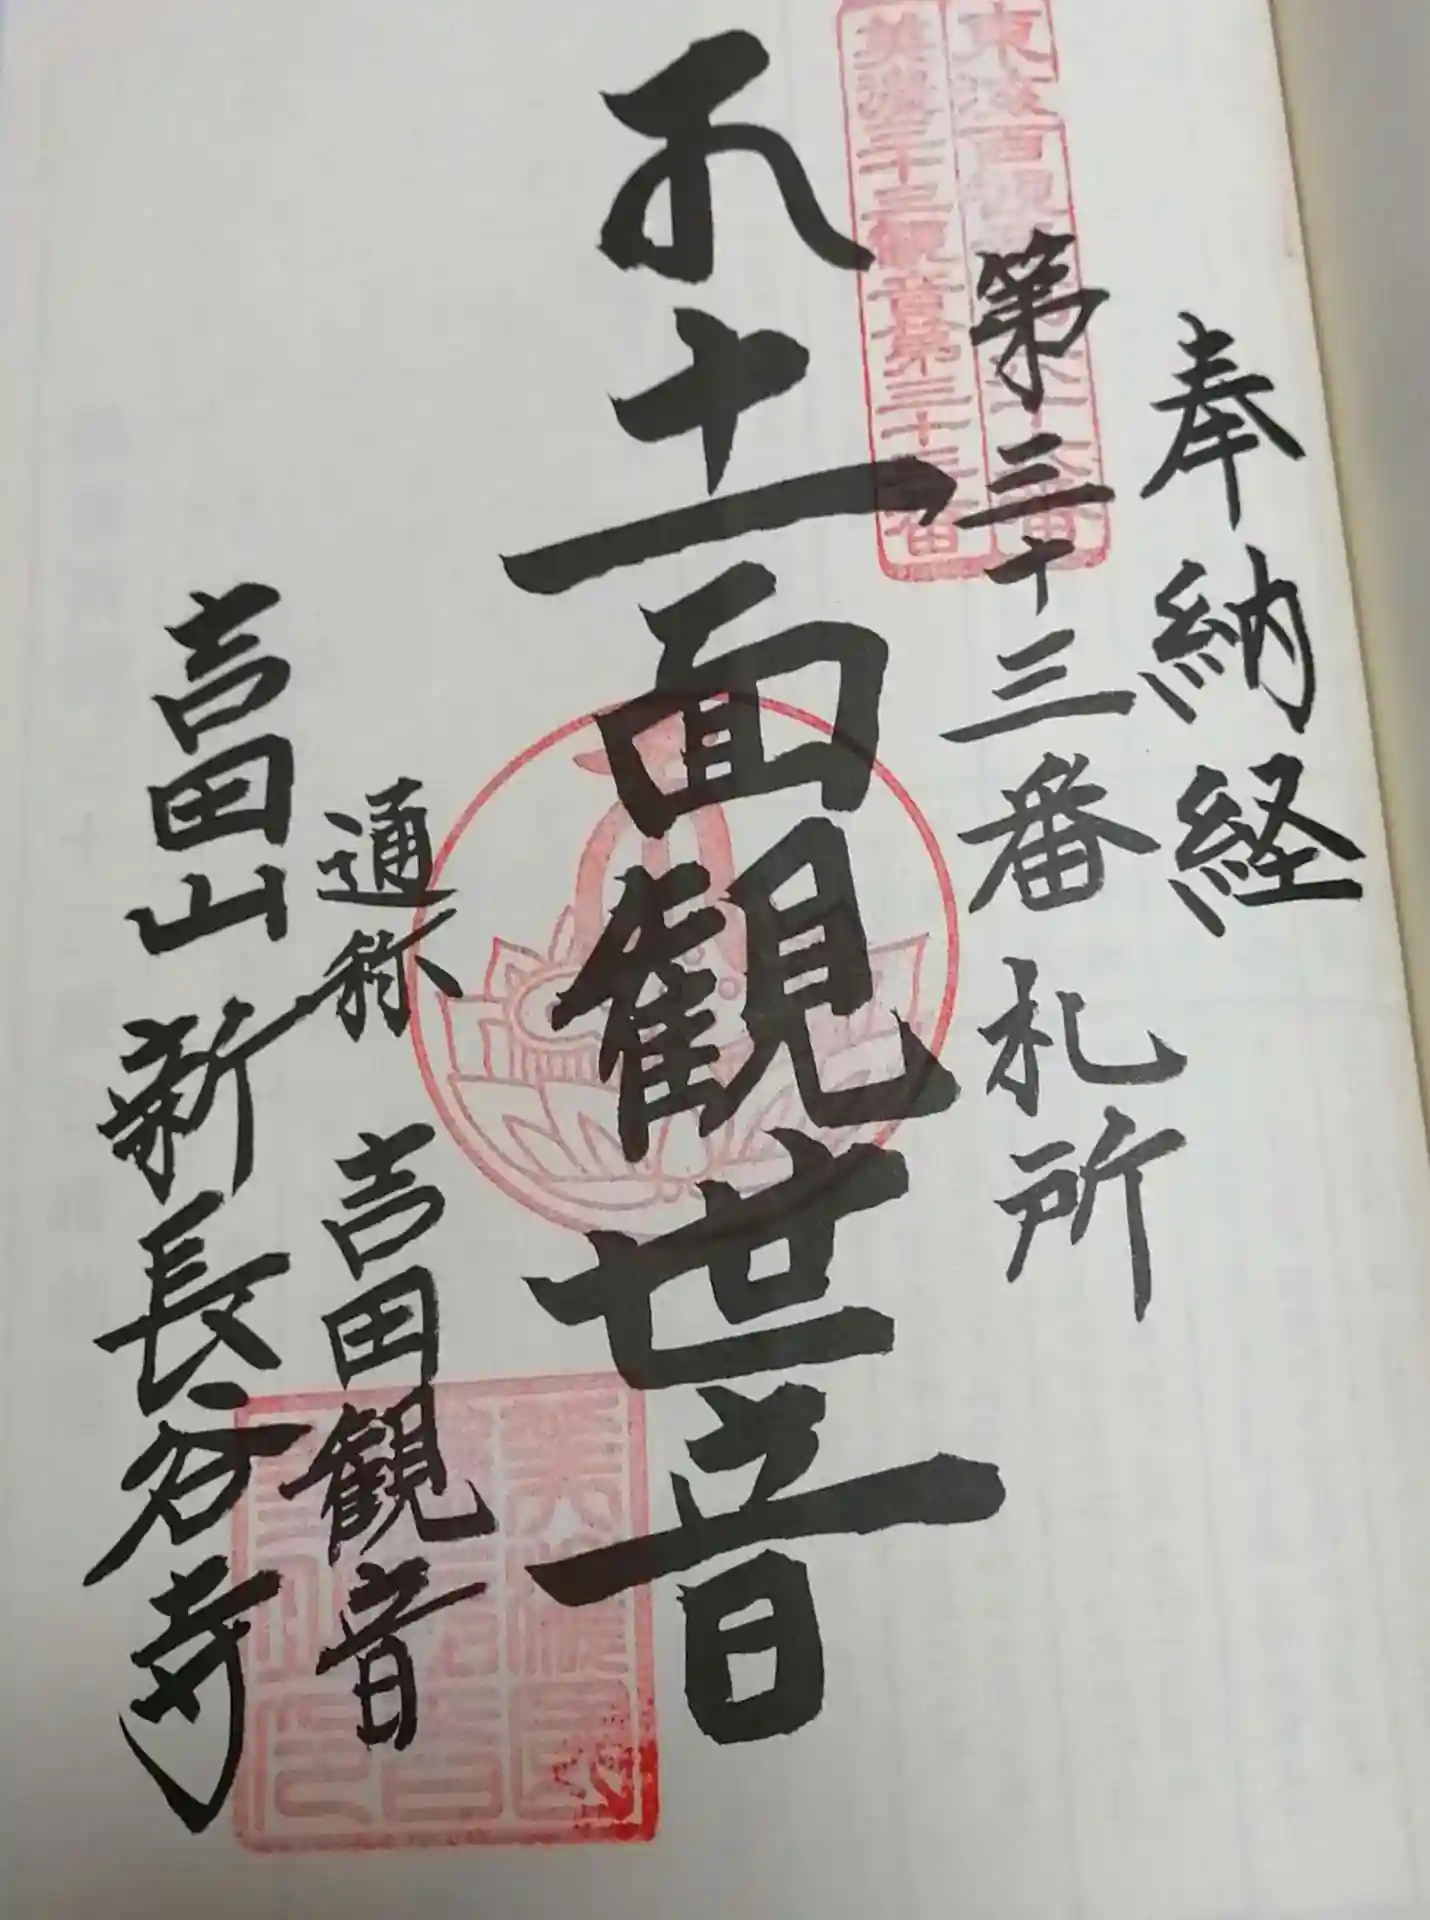 奉納経
第三十三番札所
東海百観
美濃三十三観音第三十三番
十一面観世音
通称 吉田観音
吉田山 新長谷寺